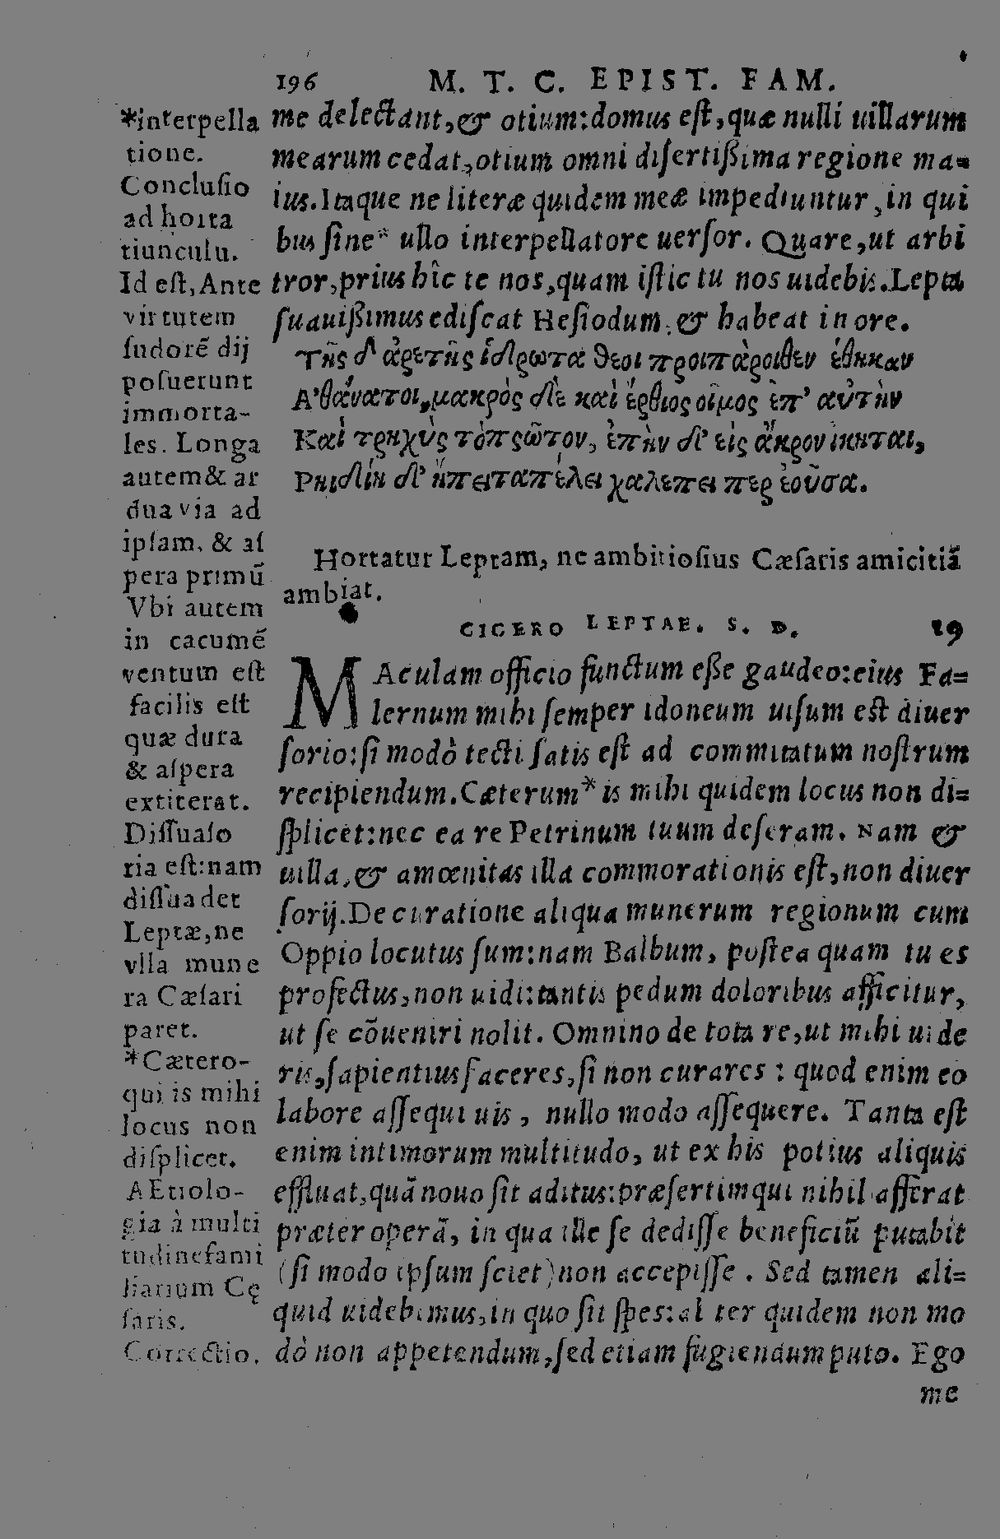 196 M. T. C. EPIST. FAM.
me delectant,& otium:domus est,quæ nulli uillarum
mearum cedat,otium omni disertißima regione ma-
ius.Itaque ne literæ quidem meæ impediuntur,in qui
bus sine* ullo interpellatore uersor. Quare,ut arbi
tror,prius hîc te nos,quam istic tu nos uidebis.Lepta
suauißimus ediscat Hesiodum,& habeat in ore.
Τῆς δ' ἀρετῆς ἱδρωτα θεοι προιπὰροιθεν ἐθηκαν
Α'θάνατοι,μακρὸς δὲ καὶ ἐρθιος οἶμος ἐπ' αὐτὴν
Καὶ τρηχὺς τὸπρῶτον, ἐπὴν δ' εἰς ἄκρον ἱκηται,
Ρηιδίη δ' ἤπειταπέλει χαλεπει περ ἐοῦσα.
Hortatur Leptam, ne ambitiosius Cæsaris amicitiã
ambiat.
CICERO LEPTAE. S. D. 19
MAculam officio functum eße gaudeo:eius Fa-
lernum mihi semper idoneum uisum est diuer
sorio:si modò tecti satis est ad commitatum nostrum
recipiendum.Cæterum* is mihi quidem locus non di-
splicet:nec ea re Petrinum tuum deseram. Nam &
uilla,& amœnitas illa commorationis est,non diuer
sorij.De curatione aliqua munerum regionum cum
Oppio locutus sum:nam Balbum, postea quam tu es
profectus,non uidi:tantis pedum doloribus afficitur,
ut se cõueniri nolit. Omnino de tota re,ut mihi uide
ris,sapientius faceres,si non curares : quod enim eo
labore assequi uis , nullo modo assequere. Tanta est
enim intimorum multitudo, ut ex his potius aliquis
effluat,quã nouo sit aditus:præsertim qui nihil afferat
præter operã, in qua ille se dedisse beneficiũ putabit
(si modo ipsum sciet)non accepisse . Sed tamen ali-
quid uidebimus,in quo sit spes:al ter quidem non mo
dò non appetendum,sed etiam fugiendum puto. Ego
me
*interpella
tione.
Conclusio
ad horta
tiunculu.
Id est,Ante
virtutem
sudorẽ dij
posuerunt
immorta-
les. Longa
autem& ar
dua via ad
ipsam, & as
pera primũ
Vbi autem
in cacumẽ
ventum est
facilis est
quæ dura
& aspera
extiterat.
Dissuaso
ria est:nam
dissuadet
Leptæ,ne
vlla mune
ra Cæsari
paret.
*Cætero-
qui is mihi
locus non
displicet.
AEtiolo-
gia à multi
tudinefami
liarium Cę
saris.
Correctio.